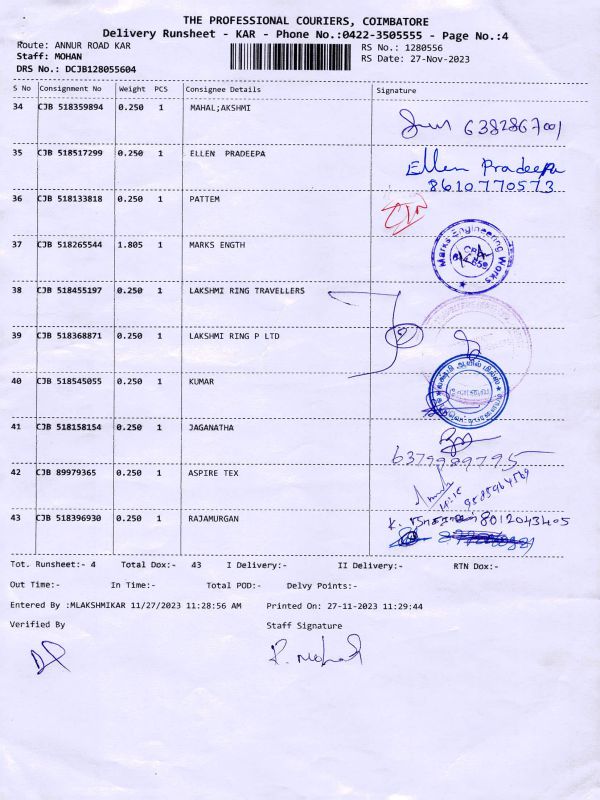 THE PROFESSIONAL COURIERS, COIMBATORE
Delivery Runsheet - KAR - Phone No.:0422-3505555 - Page No.:4
Route: ANNUR ROAD KAR
RS No.: 1280556
Staff: MOHAN
RS Date: 27-Nov-2023
DRS No.: DCJB128055604
S No Consignment No Weight PCS Consignee Details Signature
34 CJB 518359894 0.250 1 MAHAL;AKSHMI
6382867001
35 CJB 518517299 0.250 1 ELLEN PRADEEPA Ellen Pradeepa
8610770573
36 CJB 518133818 0.250 1 PATTEM
37 CJB 518265544 1.805 1 MARKS ENGTH Marks Engineering Works
38 CJB 518455197 0.250 1 LAKSHMI RING TRAVELLERS
39 CJB 518368871 0.250 1 LAKSHMI RING P LTD
40 CJB 518545055 0.250 1 KUMAR
கோவை
41 CJB 518158154 0.250 1 JAGANATHA
6379989795
42 CJB 89979365 0.250 1 ASPIRE TEX
43 CJB 518396930 0.250 1 RAJAMURGAN 8012043405
Tot. Runsheet:- 4 Total Dox:- 43 I Delivery:- II Delivery:- RTN Dox:-
Out Time:- In Time:- Total POD:- Delvy Points:-
Entered By :MLAKSHMIKAR 11/27/2023 11:28:56 AM Printed On: 27-11-2023 11:29:44
Verified By Staff Signature
P. Mohan